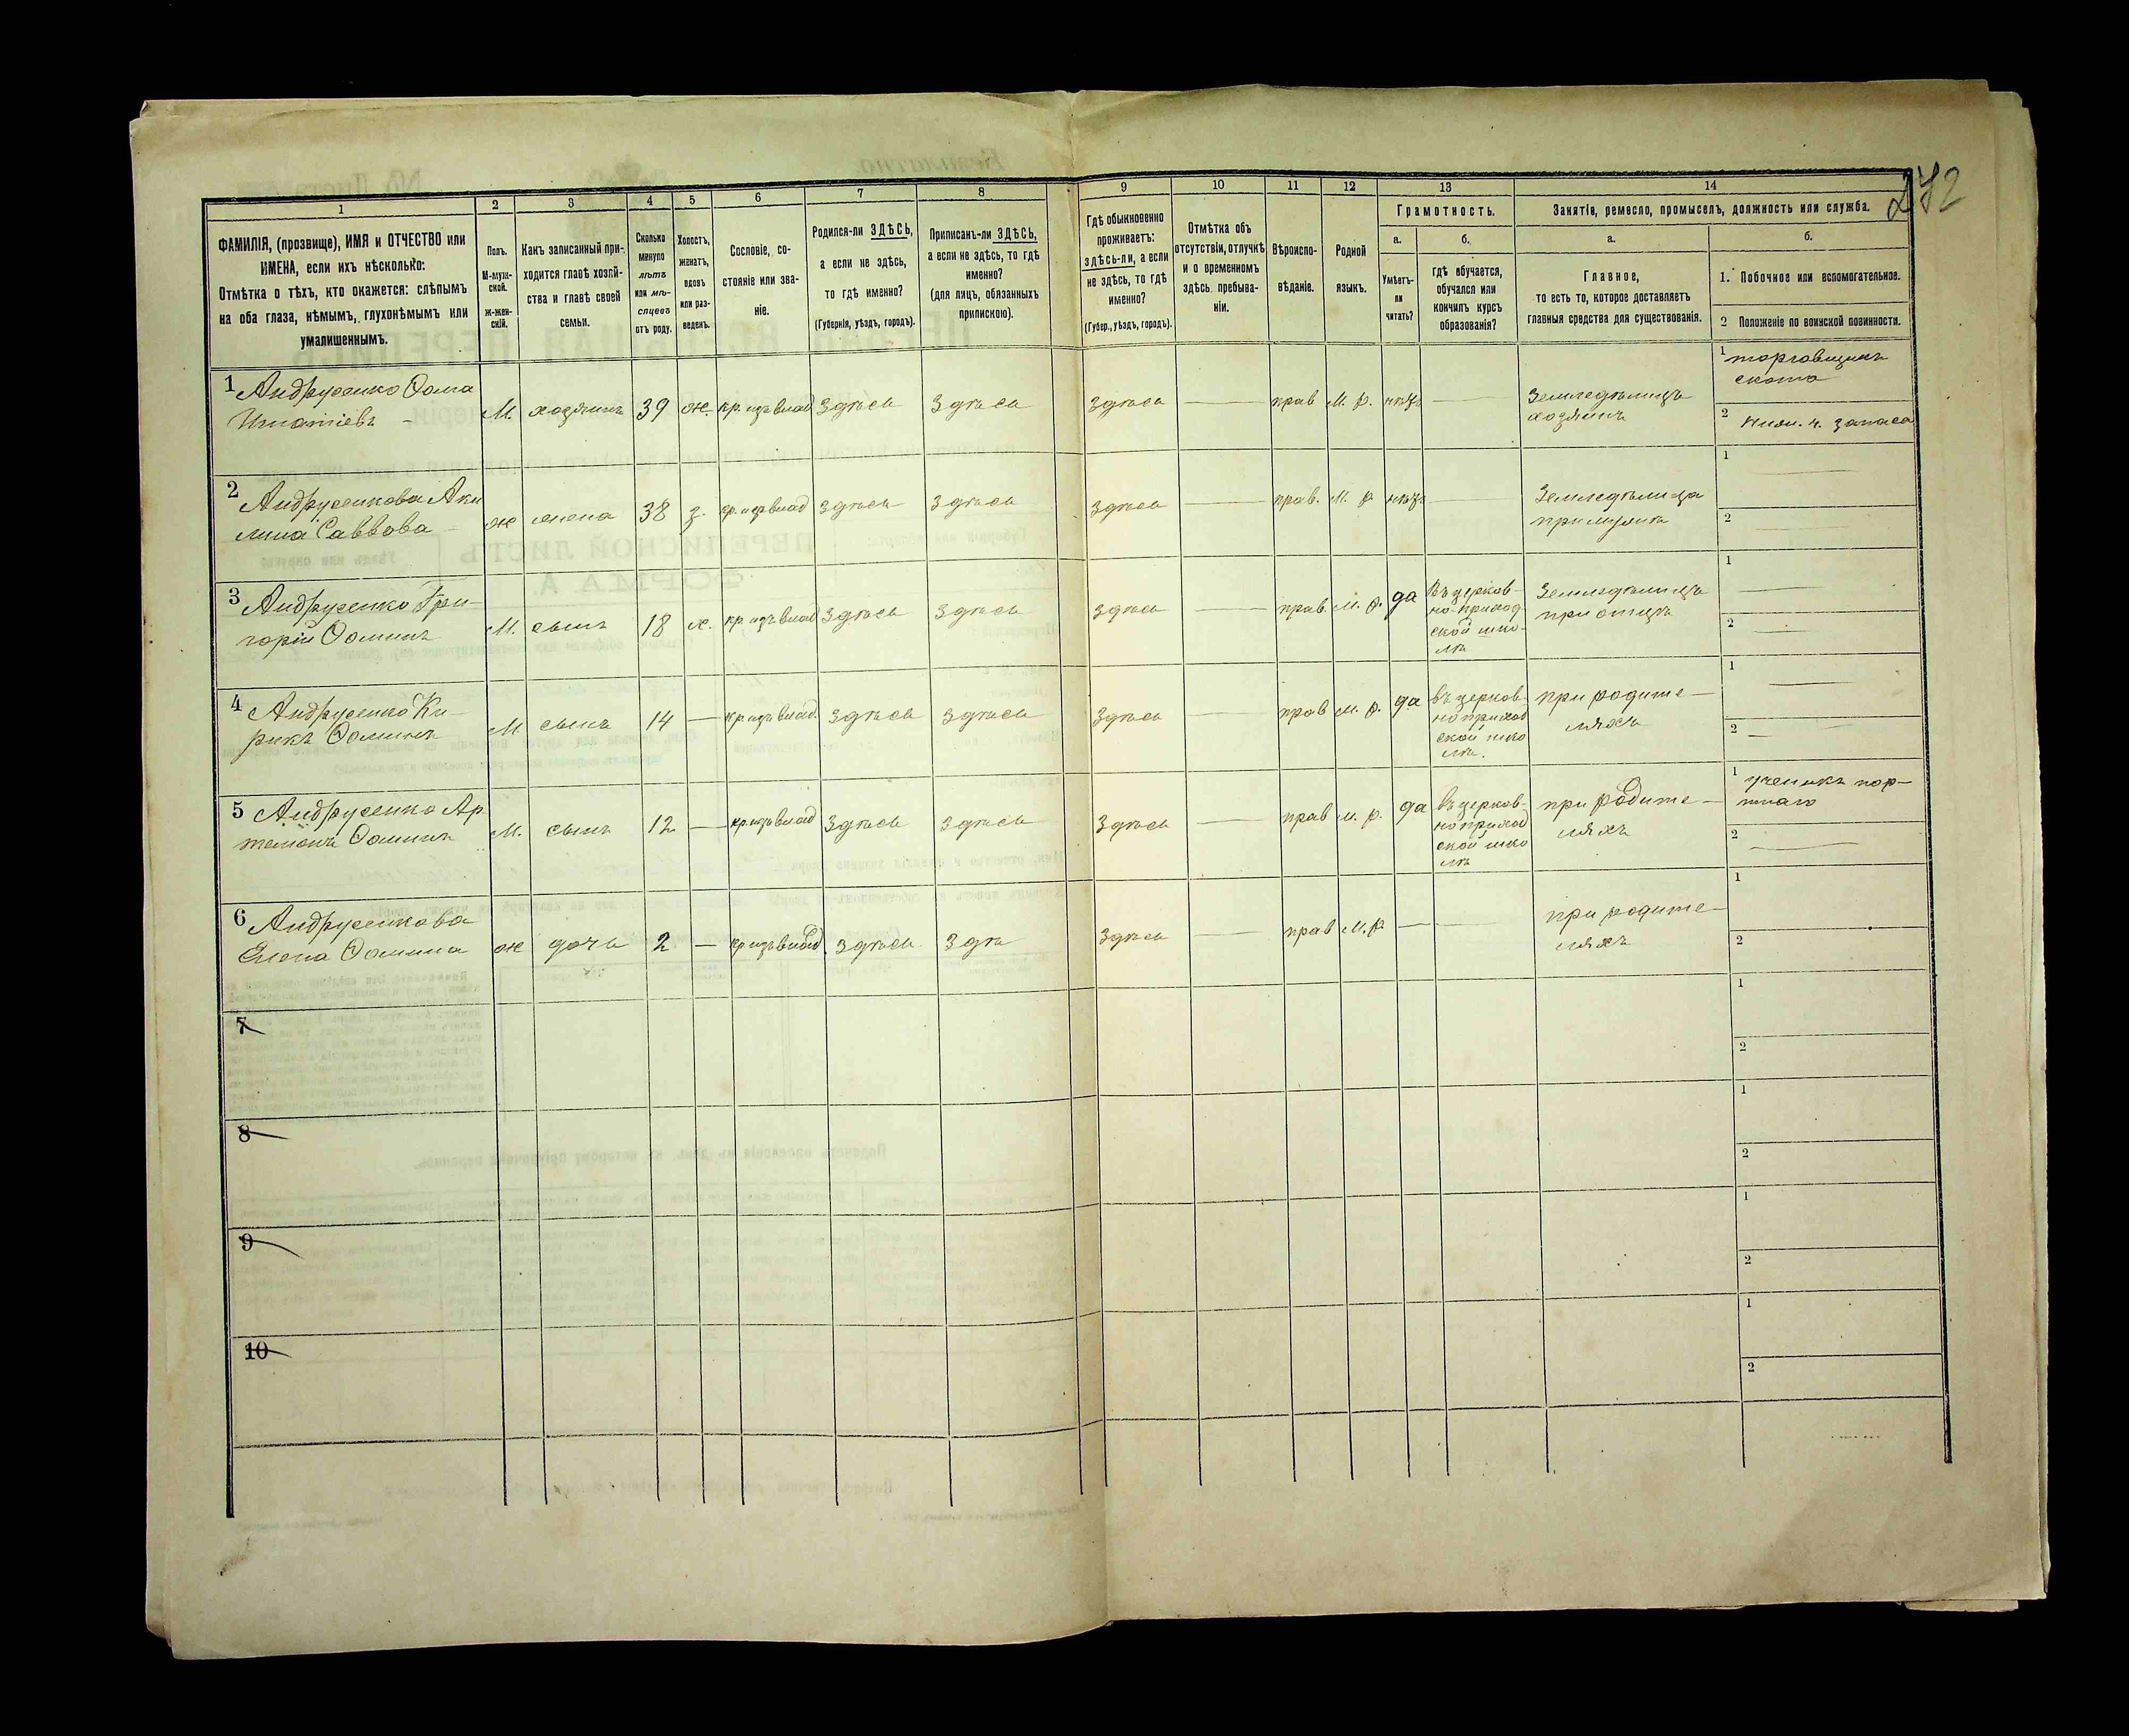 272
1
2
3
4
5
6
7
8
9
10
11
12
13
14
ФАМИЛІЯ, (прозвище), ИМЯ и ОТЧЕСТВО или
ИМЕНА, если ихъ нѣсколько:
Отмѣтка о тѣхъ, кто окажется: слѣпымъ
на оба глаза, нѣмымъ, глухонѣмымъ или
умалишеннымъ.
Полъ.
М-муж-
ской.
Ж-жен-
скій.
Какъ записанный при-
ходится главѣ хозяй-
ства и главѣ своей
семьи.
Сколько
минуло
лѣтъ
или мѣ-
сяцевъ
отъ роду.
Холостъ,
женатъ,
вдовъ
или раз-
веденъ.
Сословіе, со-
стояніе или зва-
ніе.
Родился-ли ЗДѢСЬ,
а если не здѣсь,
то гдѣ именно?
(Губернія, уѣздъ, городъ).
Приписанъ-ли ЗДѢСЬ,
а если не здѣсь, то гдѣ
именно?
(для лицъ, обязанныхъ
припискою).
Гдѣ обыкновенно
проживаетъ:
ЗДѢСЬ-ЛИ, а если
не здѣсь, то гдѣ
именно?
(Губер., уѣздъ, городъ).
Отмѣтка объ
отсутствіи, отлучкѣ
и о временномъ
здѣсь пребыва-
ніи.
Вѣроиспо-
вѣданіе.
Родной
языкъ.
Грамотность.
а.
Умѣетъ-
ли
читать?
б.
гдѣ обучается,
обучался или
кончилъ курсъ
образованія?
Занятіе, ремесло, промыселъ, должность или служба.
а.
Главное,
то есть то, которое доставляетъ
главныя средства для существованія.
б.
1. Побочное или вспомогательное.
2 Положеніе по воинской повинности.
1 Андрусенко Ѳома
Игнатіевъ
М. хозяинъ 39 ж. кр. изъ влад здѣсь здѣсь здѣсь — прав М. р. нѣтъ —
Земледѣлецъ
хозяинъ
1 торговецъ
скота
2 нижн. ч. запаса
2 Андрусенкова Аки
лина Саввова
ж жена 38 з. кр. изъ влад здѣсь здѣсь здѣсь — прав. М. р нѣтъ —
Земледѣлица
при мужѣ
1 —
2 —
3 Андрусенко Гри-
горій Ѳоминъ
М. сынъ 18 х. кр. изъ влад здѣсь здѣсь здѣсь — прав. М. р. да
Въ церков-
но-приход
ской шко-
лѣ
Земледѣлецъ
при отцѣ
1 —
2 —
4 Андрусенко Ки-
рикъ Ѳоминъ
М сынъ 14 — кр. изъ влад. здѣсь здѣсь здѣсь — прав М. р. да
въ церков-
но приход
ской шко
лѣ.
при родите-
ляхъ
1 —
2 —
5 Андрусенко Ар
темонъ Ѳоминъ
М. сынъ 12 — кр. изъ влад здѣсь здѣсь здѣсь — прав М. р. да
въ церков-
но приход
ской шко
лѣ
при родите-
ляхъ
1 ученикъ пор-
тнаго
2 —
6 Андрусенкова
Елена Ѳомина
ж дочь 2 — кр. изъ влад. здѣсь здѣ здѣсь — прав М. р — —
при родите-
ляхъ
1
2
7
1
2
8
1
2
9
1
2
10
1
2